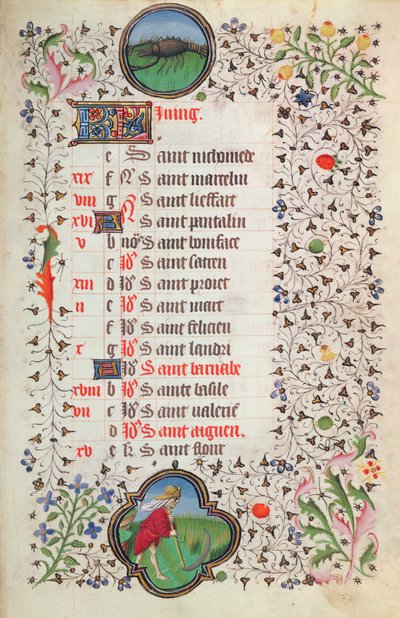 KL Juing.
e Saint nichomede
xix f N Saint marcelin
viii g Saint lieffart
xvi A N Saint pantalin
v b nōs Saint boniface
c Id9 Saint satren
xiii d Id9 Saint proiet
ii e Id9 Saint mart
f Id9 Saint felicien
x g Id9 Saint landri
A Id9 Saint barnabe
xviii b Id9 Sainte basile
vii c Id9 Saint valeriē
d Id9 Saint aignen.
xv e kl Saint flour